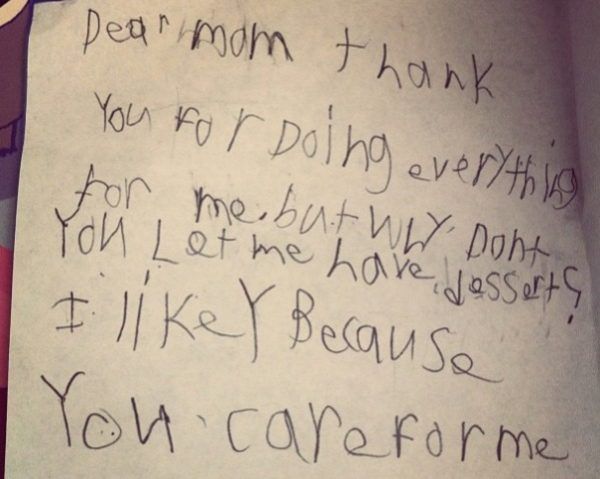 Dear mom thank
You for Doing everything
for me. but WhY Dont
You Let me have dessert?
I likeY Because
You care for me